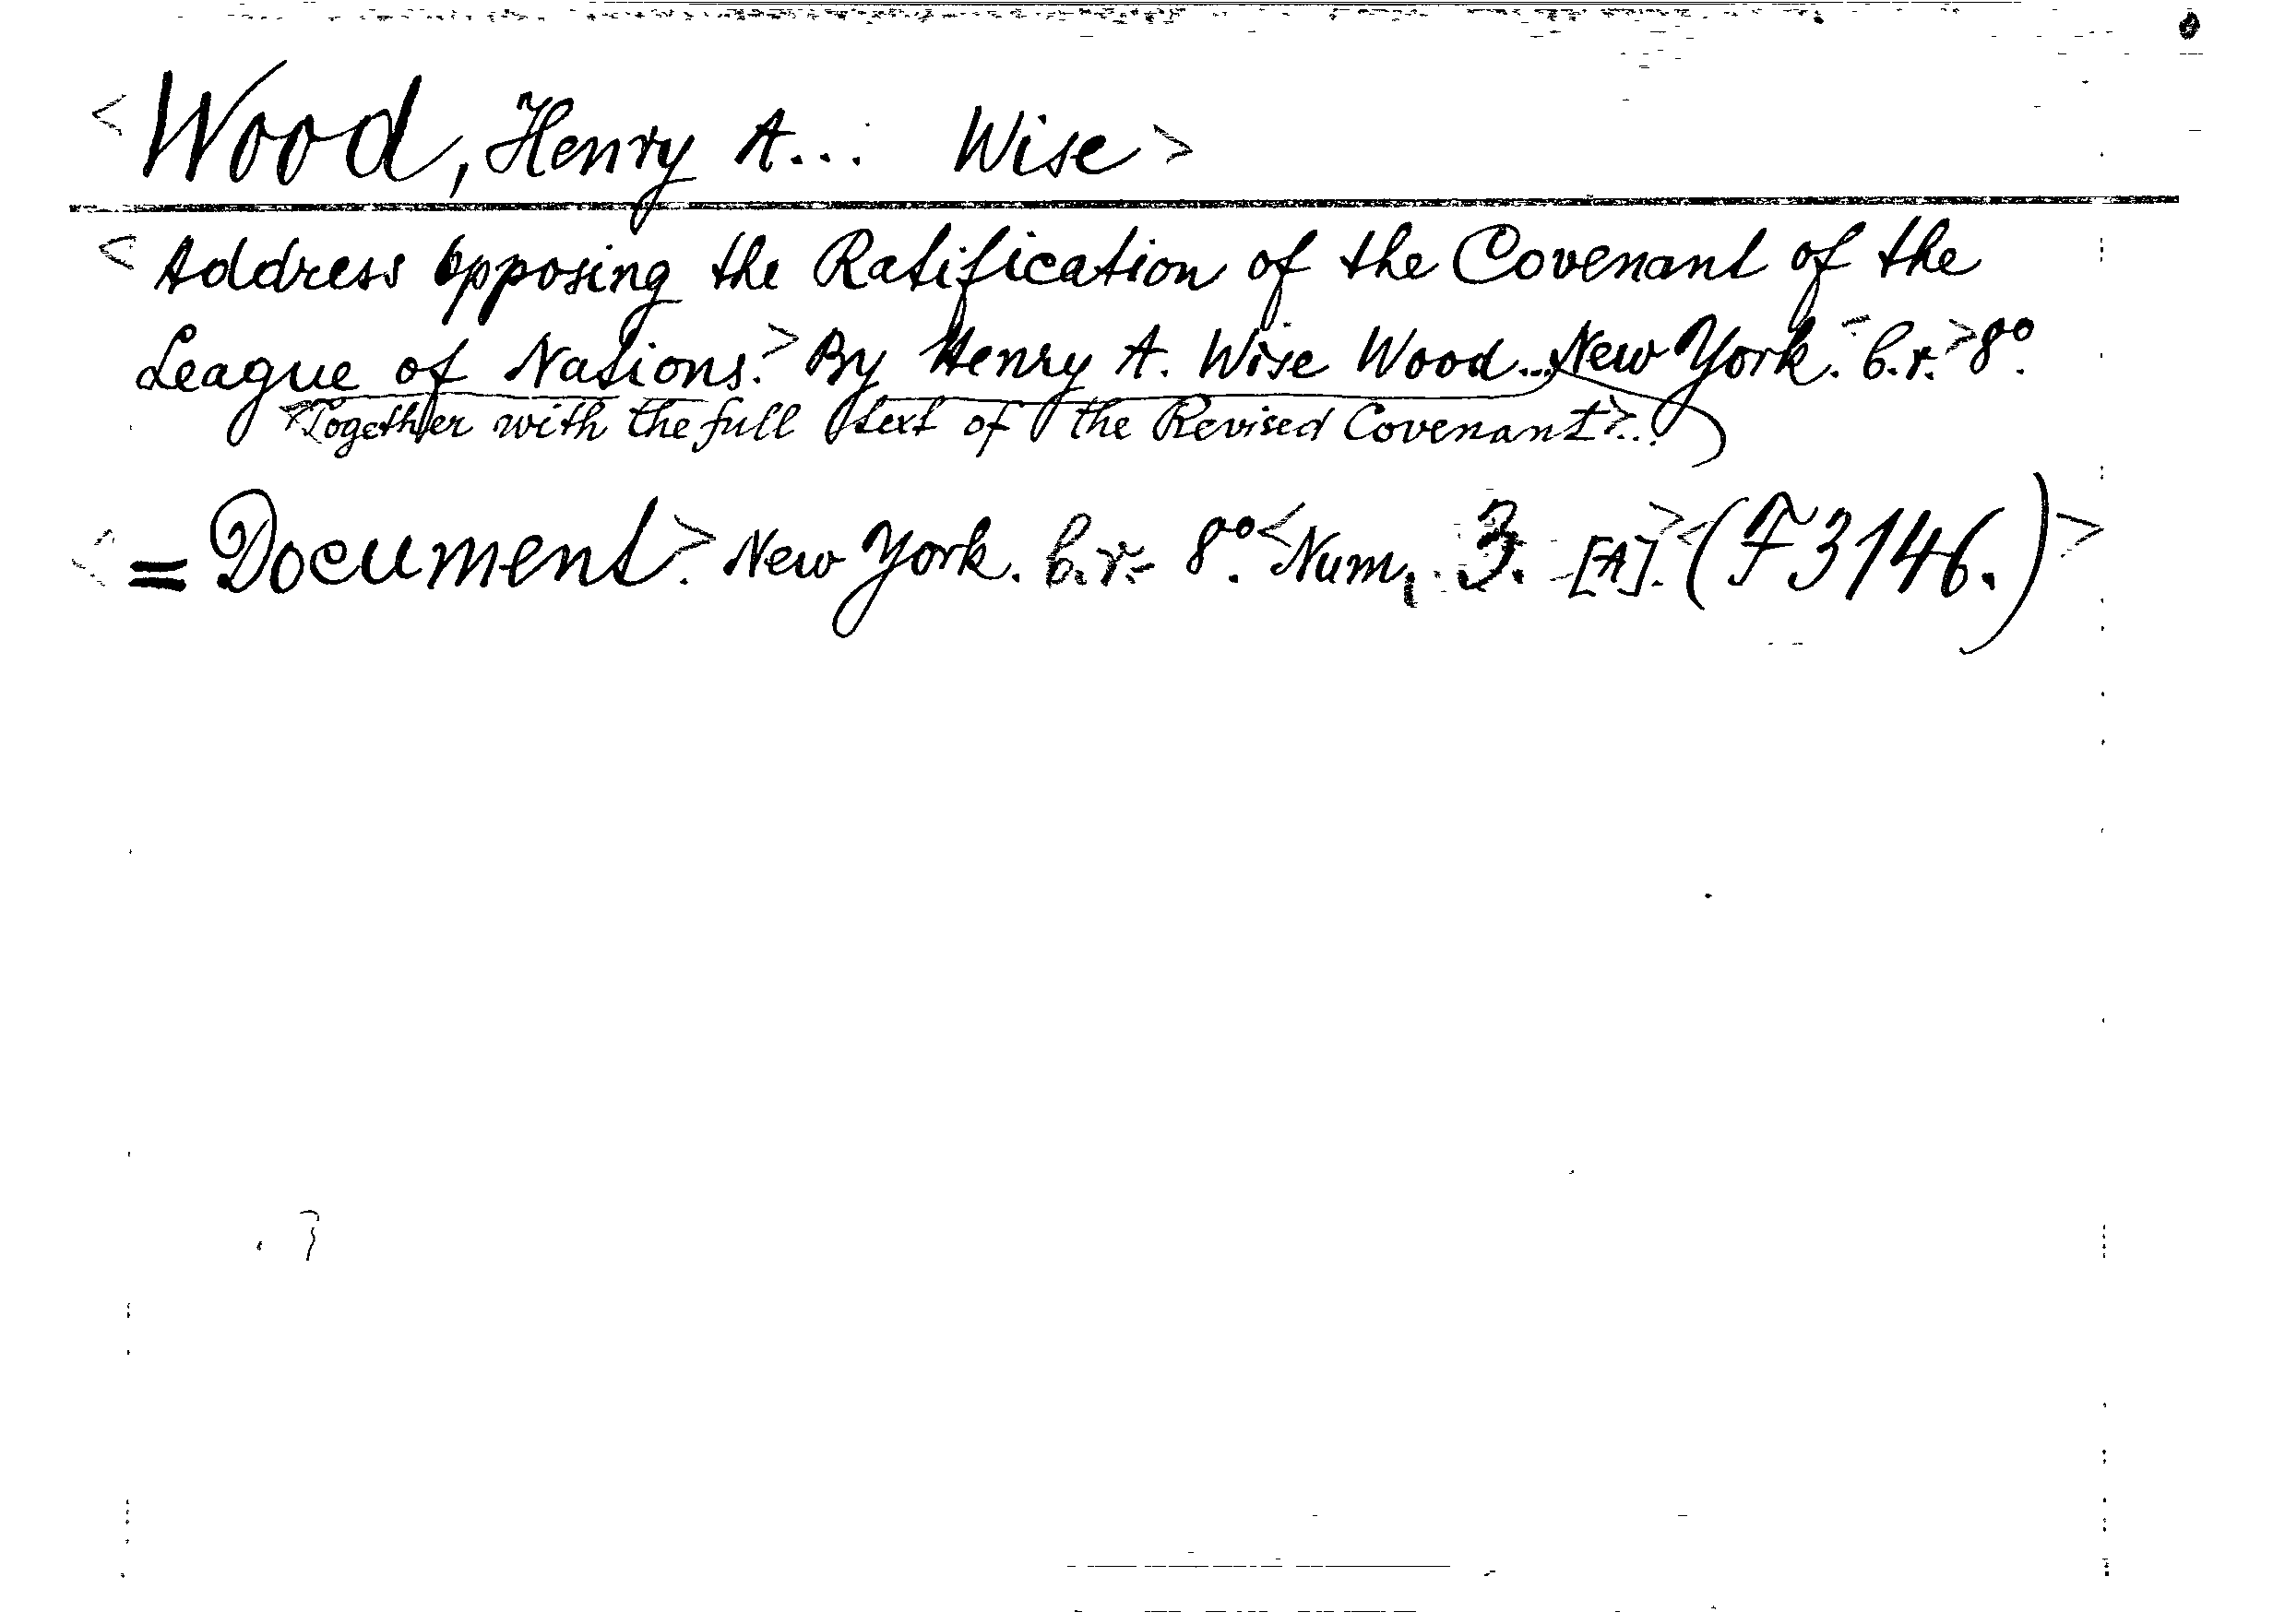 <Wood, Henry A... Wise>
<Address opposing the Ratification of the Covenant of the
League of Nations.> By Henry A. Wise Wood... New York. <b.r.> 8°.
<Together with the full text of the Revised Covenant>...
<= Document>. New York. b.r. 8°. <Num. 3. [A].> <(F3146.)>